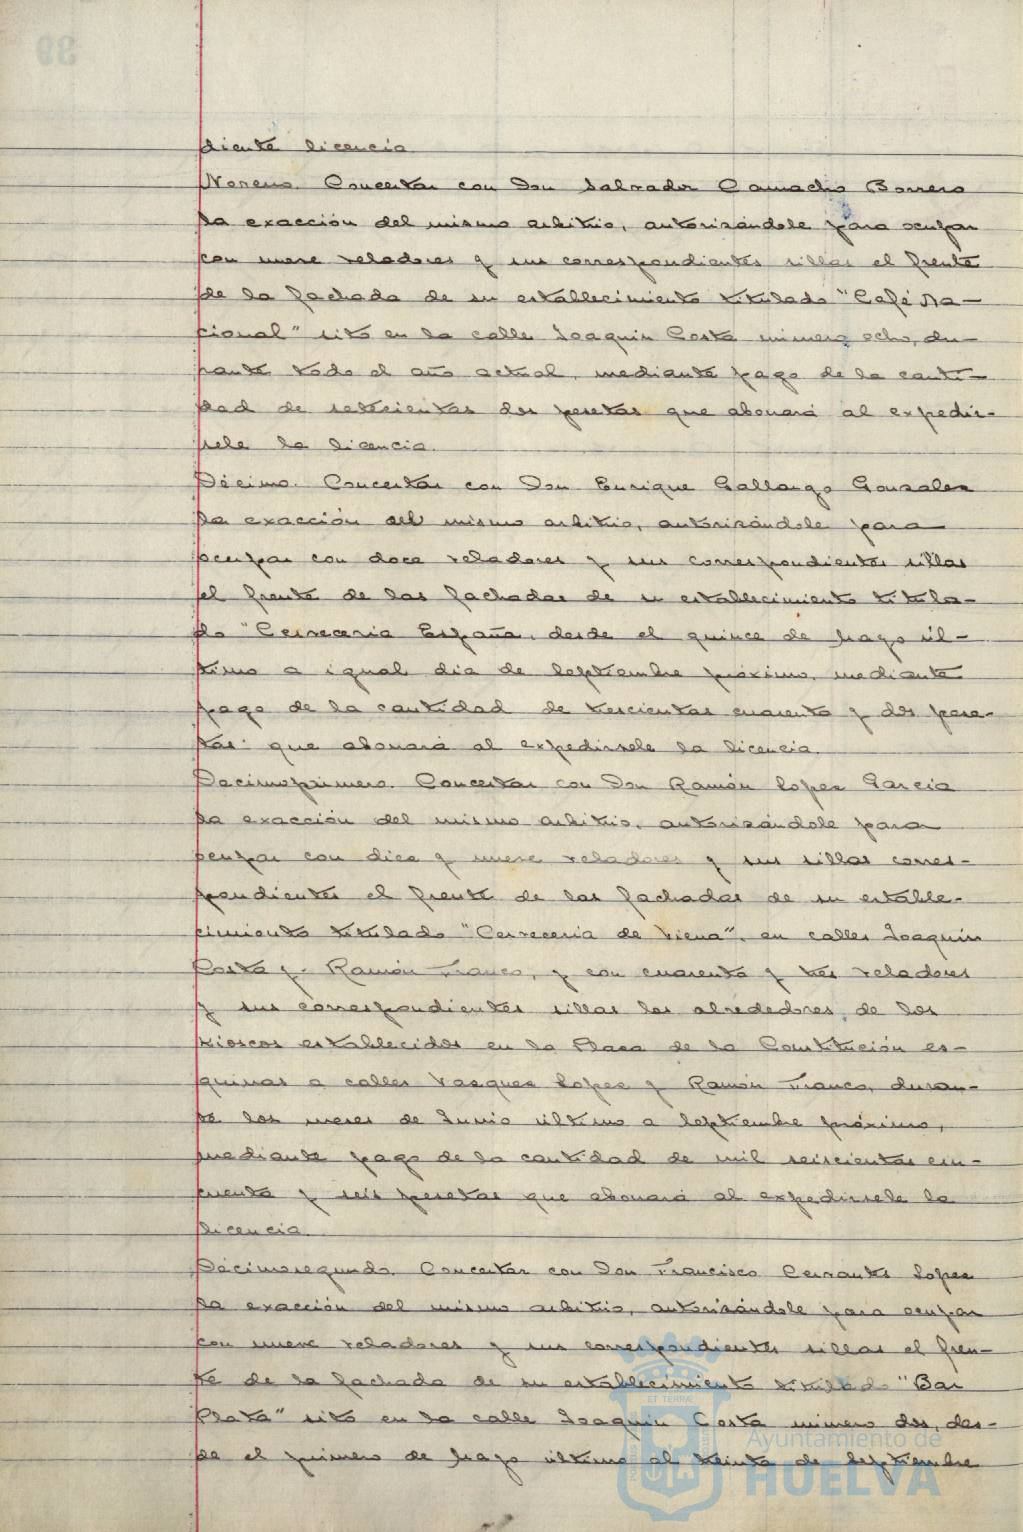 diente licencia
Noveno. Concertar con Don Salvador Camacho Borrero
la exacción del mismo arbitrio, autorizándole para ocupar
con nueve veladores y sus correspondientes sillas el frente
de la fachada de su establecimiento titulado "Café Na-
cional" sito en la calle Joaquín Costa número ocho, du-
rante todo el año actual, mediante pago de la canti-
dad de setecientas dos pesetas que abonará al expedir-
sele la licencia.
Décimo. Concertar con Don Enrique Gallango Gonzalez
la exacción del mismo arbitrio, autorizándole para
ocupar con doce veladores y sus correspondientes sillas
el frente de las fachadas de su establecimiento titula-
do "Cerveceria España, desde el quince de Mayo úl-
timo a igual dia de Septiembre próximo, mediante
pago de la cantidad de trescientas cuarenta y dos pese-
tas que abonará al expedirsele la licencia.
Decimoprimero. Concertar con Don Ramón Lopez Garcia
la exacción del mismo arbitrio, autorizándole para
ocupar con diez y nueve veladores y sus sillas corres-
pondientes el frente de las fachadas de su estable-
cimiento titulado "Cerveceria de Viena", en calles Joaquin
Costa y Ramón Franco, y con cuarenta y tres veladores
y sus correspondientes sillas los alrededores de los
kioscos establecidos en la Plaza de la Constitución es-
quinas a calles Vazquez Lopez y Ramón Franco, duran-
te los meses de Junio último a Septiembre próximo,
mediante pago de la cantidad de mil seiscientas cin-
cuenta y seis pesetas que abonará al expedirsele la
licencia.
Décimosegundo. Concertar con Don Francisco Cervantes Lopez
la exacción del mismo arbitrio, autorizándole para ocupar
con nueve veladores y sus correspondientes sillas el fren-
te de la fachada de su establecimiento titulado "Bar
Plata" sito en la calle Joaquin Costa número dos, des-
de el primero de Mayo último al treinta de Septiembre
Ayuntamiento de
HUELVA